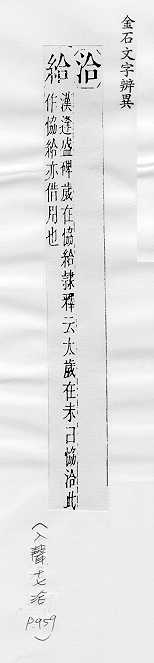 金石文字辨異
洽
給
漢逢盛碑歲在協給隸釋云太歲在未曰協洽此
作協給亦借用也
(入聲十七洽
P.959)